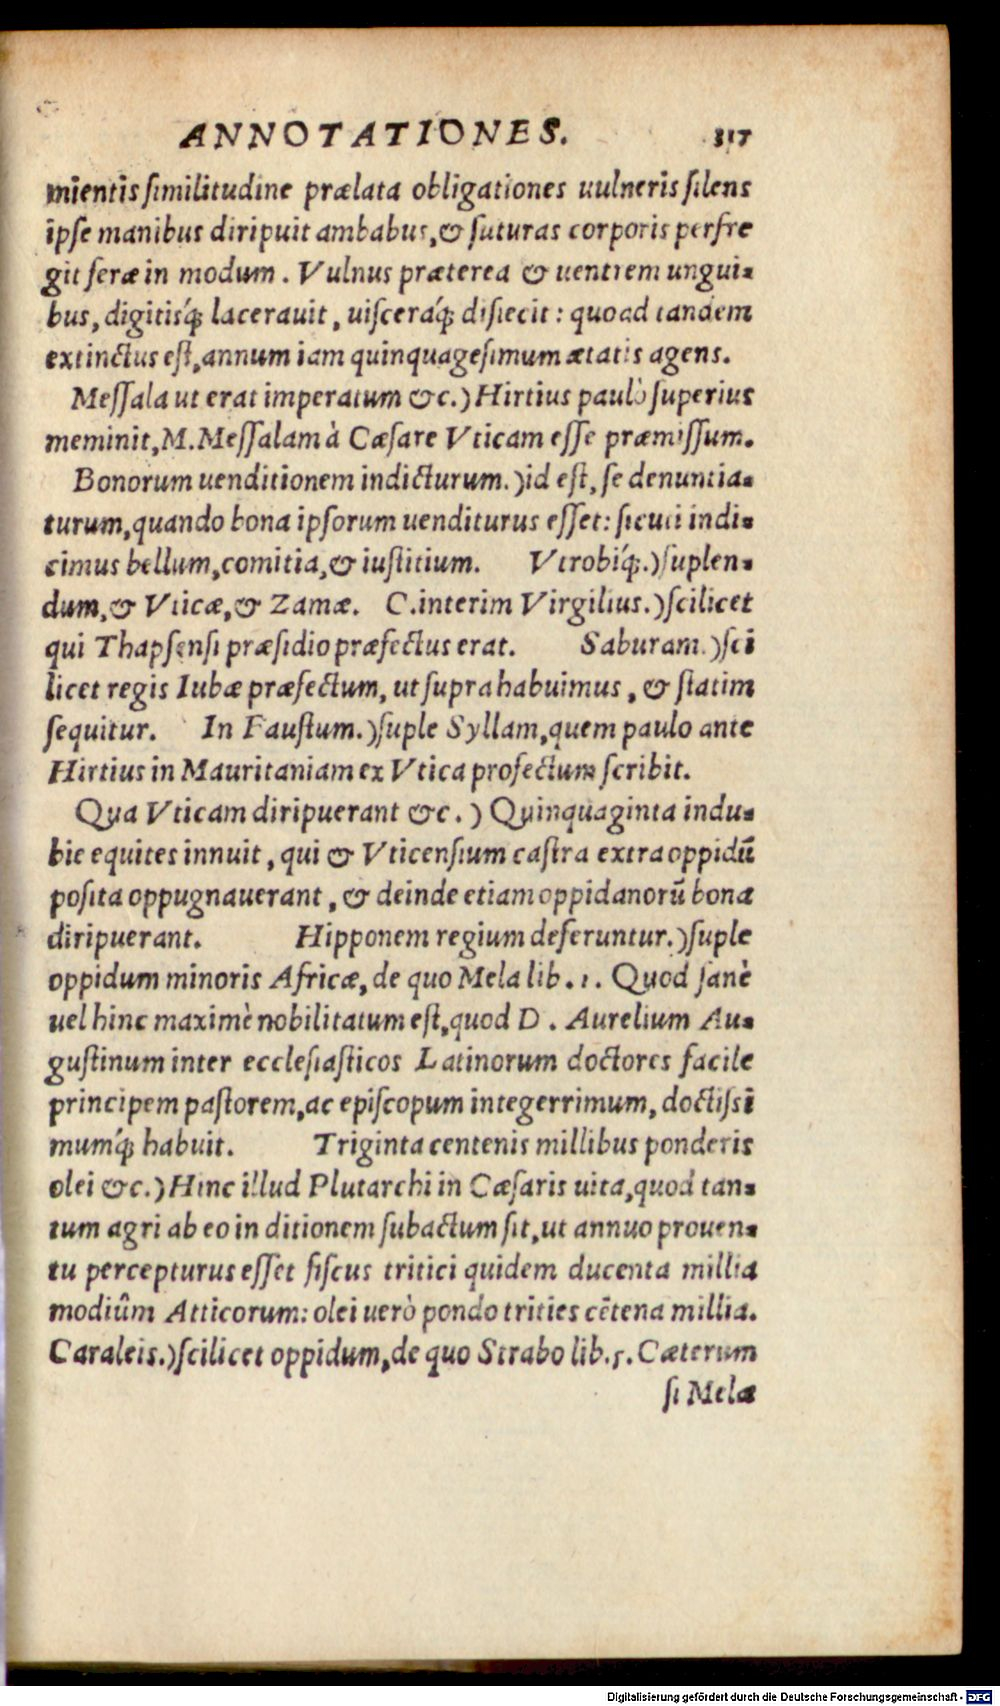 ANNOTATIONES. 317
mientis ſimilitudine prælata obligationes uulneris ſilens
ipſe manibus diripuit ambabus, & ſuturas corporis perfre
git feræ in modum. Vulnus præterea & uentrem ungui-
bus, digitisq́; lacerauit, uiſceraq́; diſiecit: quoad tandem
extinctus eſt, annum iam quinquageſimum ætatis agens.
Meſſala ut erat imperatum &c.) Hirtius paulò ſuperius
meminit, M. Meſſalam à Cæſare Vticam eſſe præmiſſum.
Bonorum uenditionem indicturum.) id eſt, ſe denuntia-
turum, quando bona ipſorum uenditurus eſſet: ſicuti indi-
cimus bellum, comitia, & iuſtitium. Vtrobiq́;.) ſuplen-
dum, & Vticæ, & Zamæ. C. interim Virgilius.) ſcilicet
qui Thapſenſi præſidio præfectus erat. Saburam.) ſci
licet regis Iubæ præfectum, ut ſupra habuimus, & ſtatim
ſequitur. In Fauſtum.) ſuple Syllam, quem paulo ante
Hirtius in Mauritaniam ex Vtica profectum ſcribit.
Qua Vticam diripuerant &c.) Quinquaginta indu-
bie equites innuit, qui & Vticenſium caſtra extra oppidū
poſita oppugnauerant, & deinde etiam oppidanorū bona
diripuerant. Hipponem regium deferuntur.) ſuple
oppidum minoris Africæ, de quo Mela lib. 1. Quod ſanè
uel hinc maximè nobilitatum eſt, quod D. Aurelium Au-
guſtinum inter eccleſiaſticos Latinorum doctores facile
principem paſtorem, ac epiſcopum integerrimum, doctiſsi
mumq́; habuit. Triginta centenis millibus ponderis
olei &c.) Hinc illud Plutarchi in Cæſaris uita, quod tan-
tum agri ab eo in ditionem ſubactum ſit, ut annuo prouen-
tu percepturus eſſet fiſcus tritici quidem ducenta millia
modiûm Atticorum: olei uerò pondo trities cētena millia.
Caraleis.) ſcilicet oppidum, de quo Strabo lib. 5. Cæterum
ſi Melæ
Digitalisierung gefördert durch die Deutsche Forschungsgemeinschaft - DFG